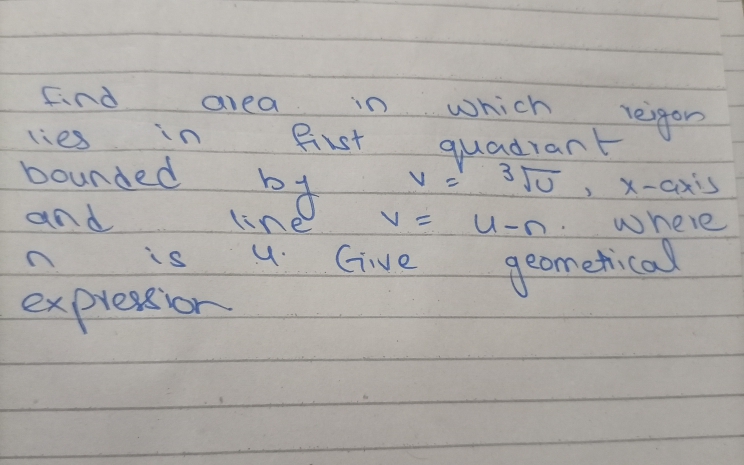 find area in which reigon
lies in first quadrant
bounded by v = ³√U, x-axis
and line v = u-n. where
n is 4. Give geometrical
expression